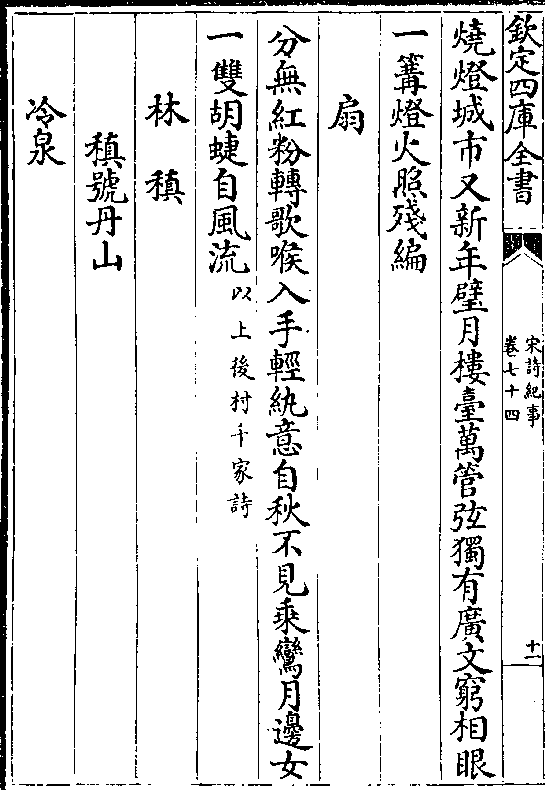 欽定四庫全書
宋詩紀事
卷七十四
十一
燒燈城市又新年璧月樓臺萬管弦獨有廣文窮相眼
一篝燈火照殘編
扇
分無紅粉轉歌喉入手輕紈意自秋不見乘鸞月邊女
一雙胡蜨自風流以上後村千家詩
林稹
稹號丹山
冷泉